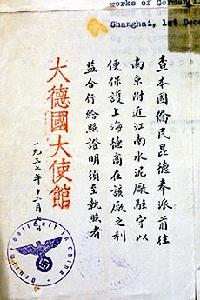 works of German
Shanghai, 1st Dece
查本國僑民昆德奉派前往
南京附近江南水泥廠駐守以
便保護上海德商在該廠之利
益合行給照證明須至執照者
大德國大使館
一九三七年十二月